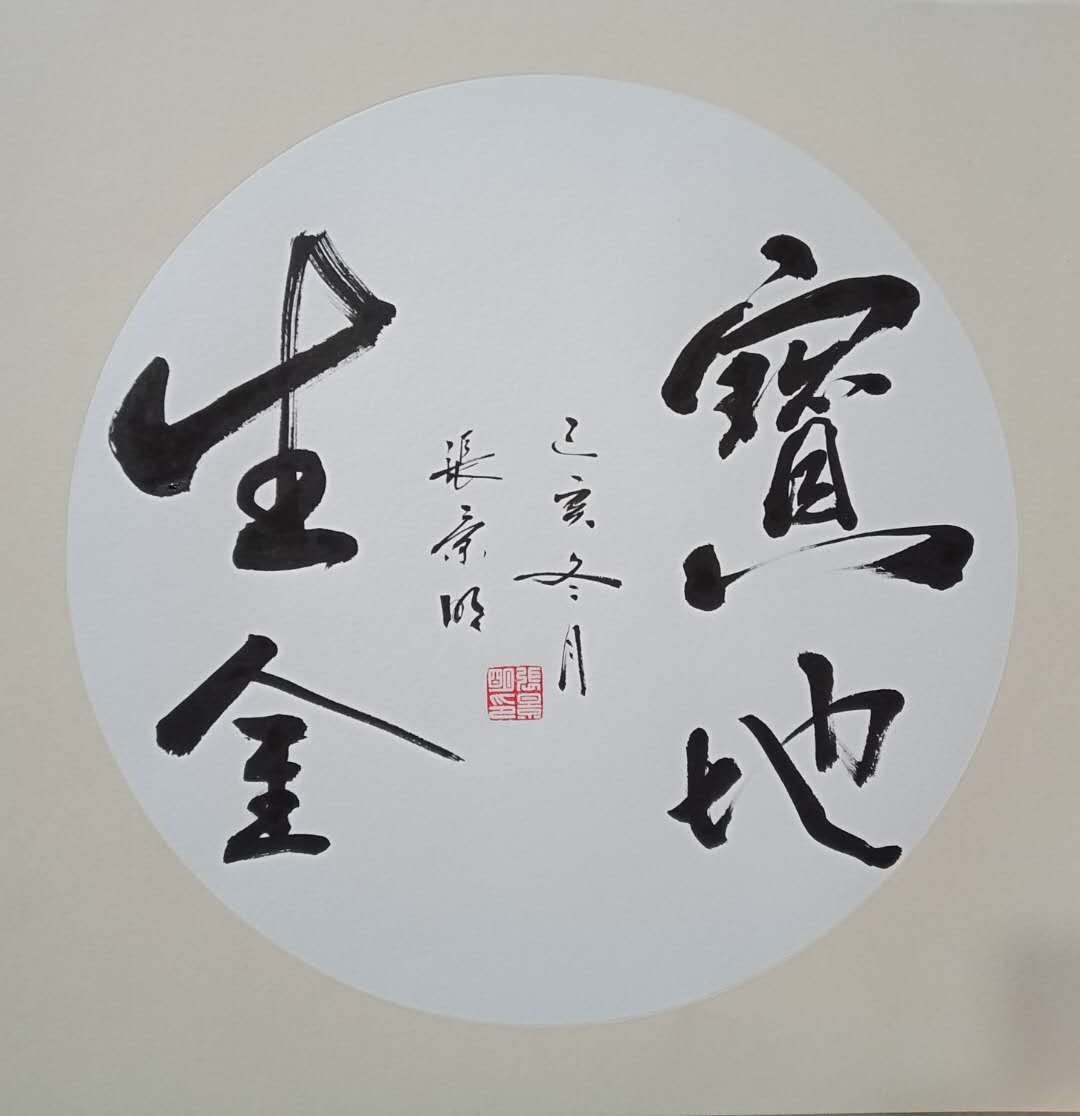 寶地
生金
己亥冬月
張景明
張景明印